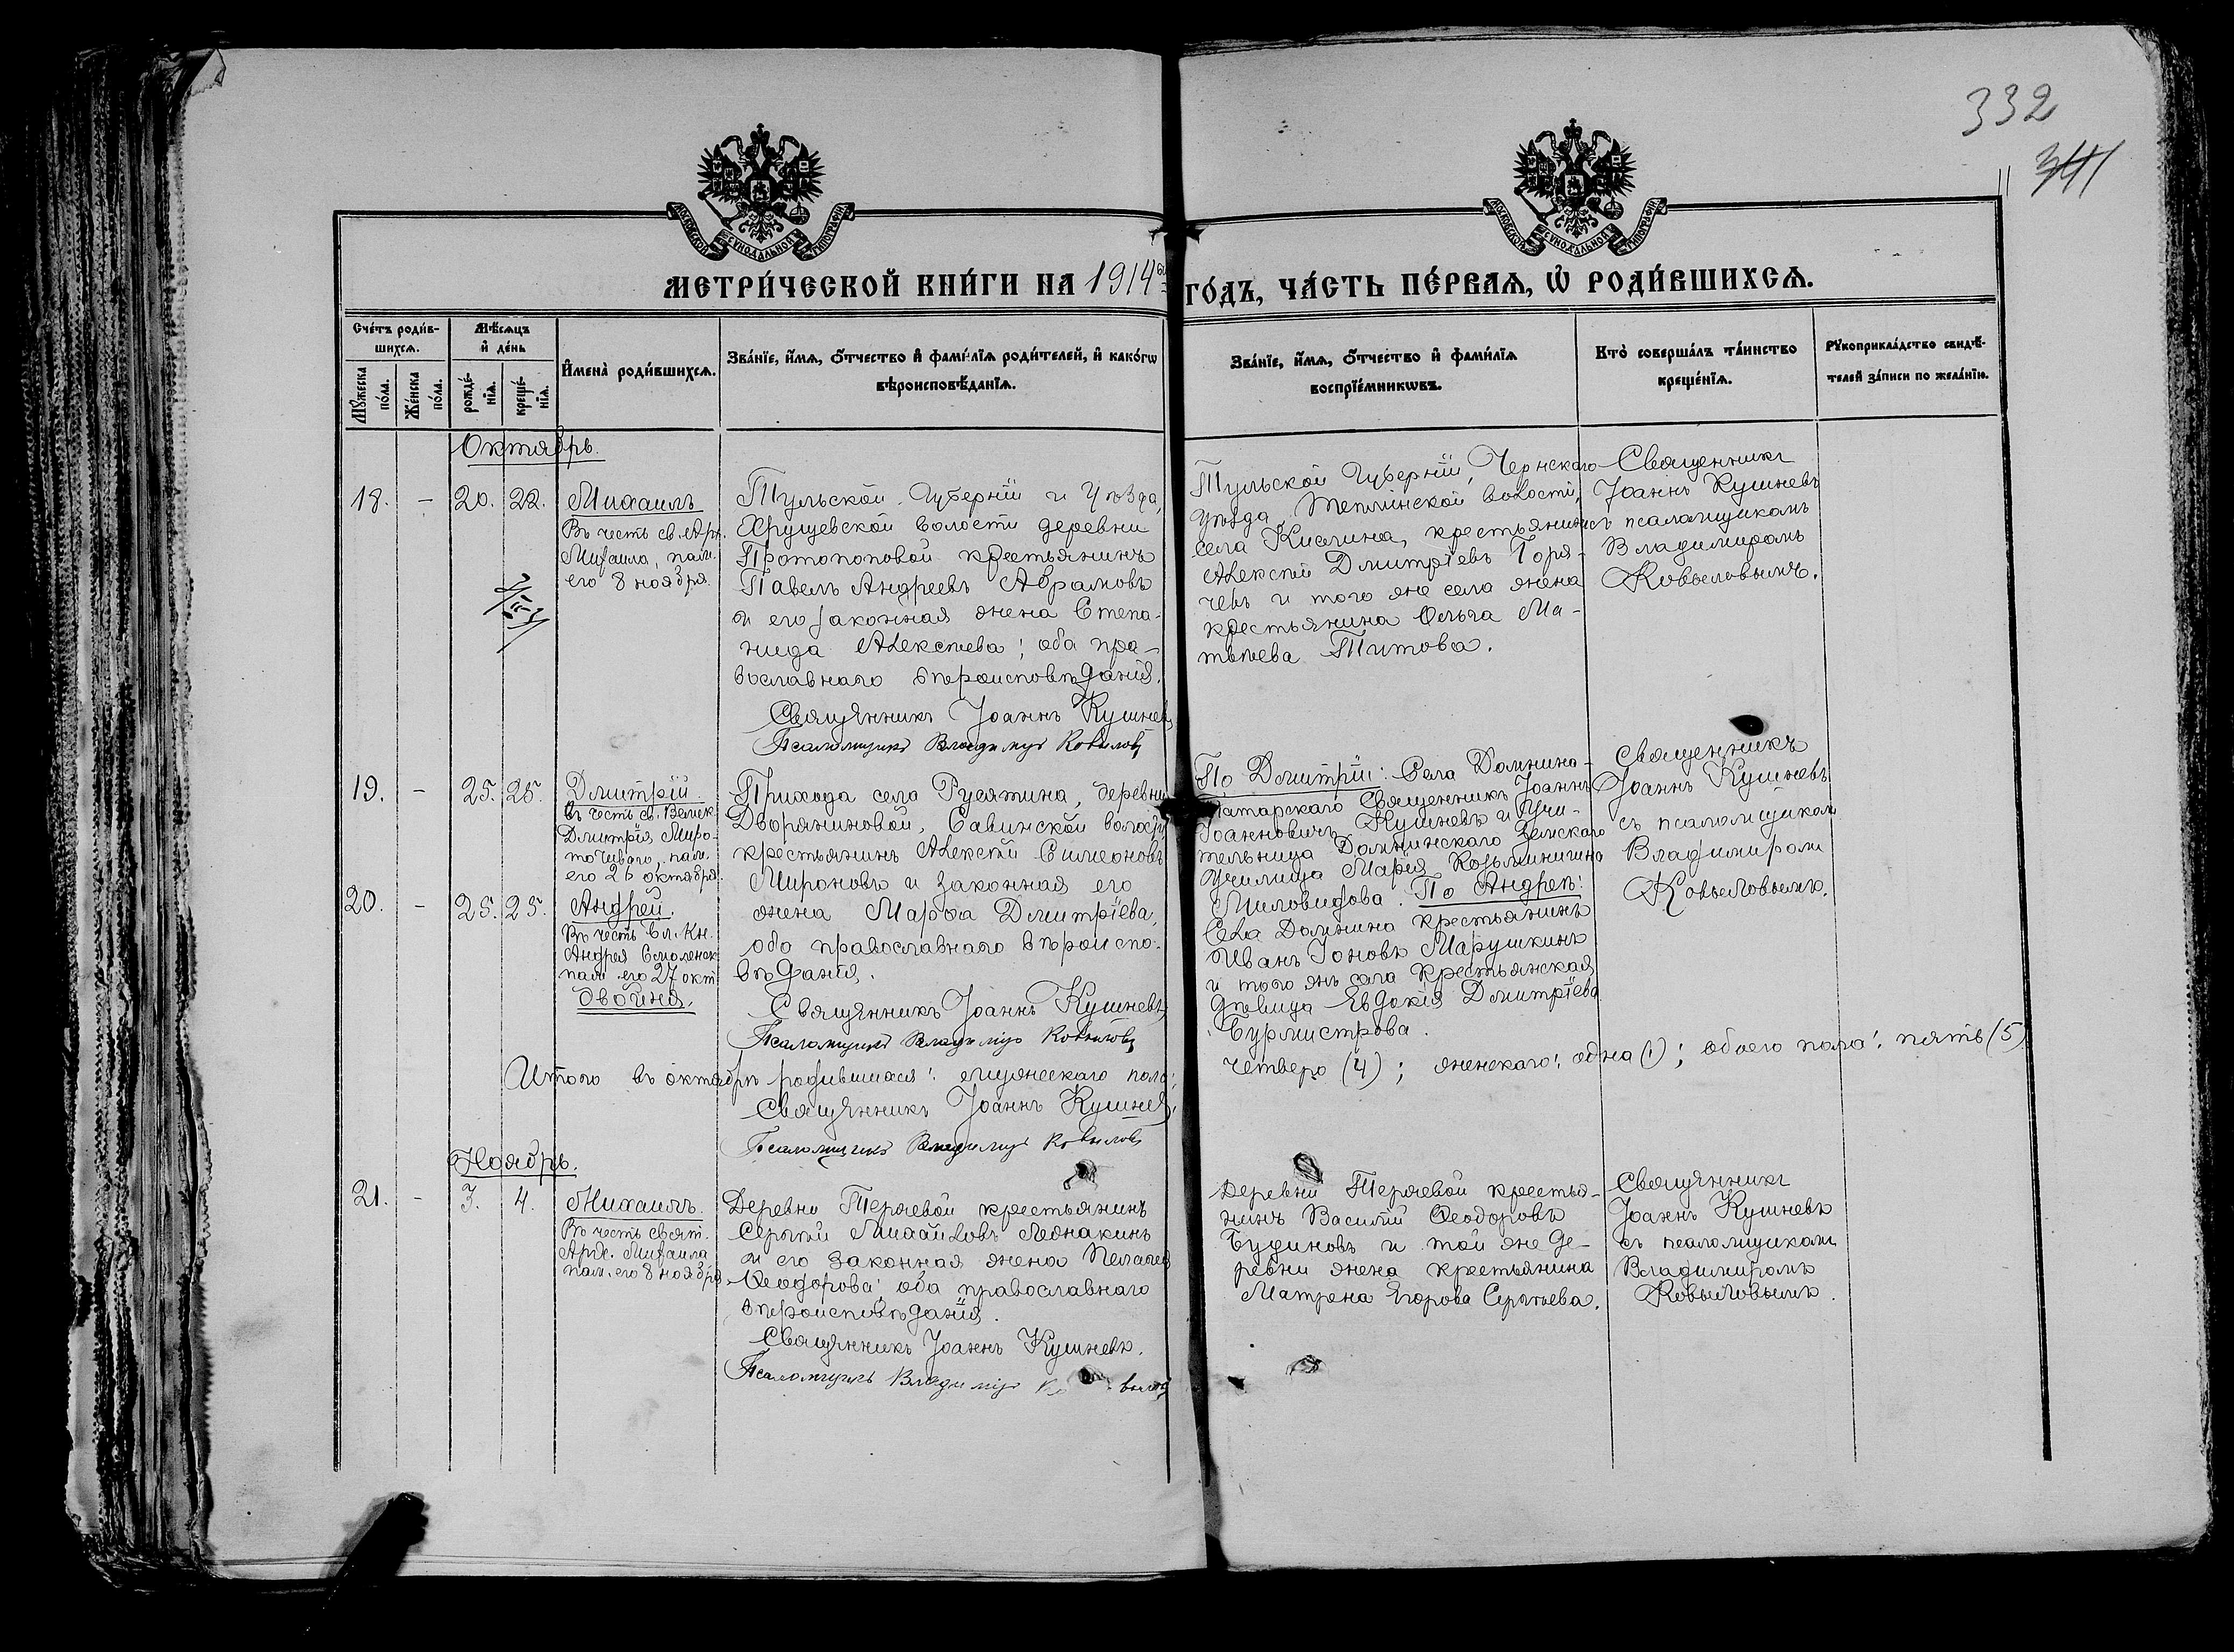 332
341
МОСКОВСКОЙ СѴНОДАЛЬНОЙ ТИПОГРАФІИ
МОСКОВСКОЙ СѴНОДАЛЬНОЙ ТИПОГРАФІИ
МЕТРИ́ЧЕСКОЙ КНИ́ГИ НА 1914 ГО́ДЪ, ЧА́СТЬ ПЕ́РВАѦ, Ѡ҆ РОДИ́ВШИХСѦ.
Сче́тъ роди́в-
шихсѧ.
Мꙋ́жеска по́ла.
Же́нска по́ла.
Мѣ́сѧцъ
и҆ де́нь
рожде́-
нїѧ.
креще́-
нїѧ.
И҆мена̀ роди́вшихсѧ.
Зва́нїе, и҆́мѧ, ѻ҆́тчество и҆ фами́лїѧ роди́телей, и҆ како́гѡ
вѣроисповѣ́данїѧ.
Зва́нїе, и҆́мѧ, ѻ҆́тчество и҆ фами́лїѧ
воспрїе́мникѡвъ.
Кто̀ соверша́лъ та́инство
креще́нїѧ.
Рꙋкоприкла́дство свидѣ́-
телей за́писи по жела́нїю.
Октябрь.
18. - 20. 22.
Михаилъ
Въ честь св. Арх.
Михаила, пам.
его 8 ноября.
Тульской Губерніи и Уѣзда,
Хрущевской волости деревни
Протопоповой крестьянинъ
Павелъ Андреевъ Абрамовъ
и его законная жена Степа-
нида Алексѣева; оба пра-
вославнаго вѣроисповѣданія.
Священникъ Іоаннъ Кушневъ
Псаломщикъ Владиміръ Ковыловъ
Тульской Губерніи, Чернскаго
уѣзда, волости,
села Кислина, крестьянинъ
Алексѣй Дмитріевъ Горя-
чевъ и того же села жена
крестьянина Ольга Ма-
твѣева Титова.
Священникъ
Іоаннъ Кушневъ
съ псаломщикомъ
Владимиромъ
Ковыловымъ.
19. - 25. 25.
Дмитрій.
въ честь св. Велик.
Дмитрія Миро-
точиваго, пам.
его 26 октября.
20. - 25. 25.
Андрей.
Въ честь Бл. Кн.
Андрея Смоленск.
пам его 27 окт
двойня.
Прихода села Русятина, деревни
Дворяниновой, Савинской волости
крестьянинъ Алексѣй Симеоновъ
Мироновъ и законная его
жена Марѳа Дмитріева,
оба православнаго вѣроиспо-
вѣданія.
Священникъ Іоаннъ Кушневъ
Псаломщикъ Владиміръ Ковыловъ
По Дмитріи: Села Домнина-
Татарскаго Священникъ Іоаннъ
Іоанновичъ Кушневъ и Учи-
тельница Домнинскаго Земскаго
Училища Марія Козьминична
Миловидова. По Андреѣ:
Села Домнина крестьянинъ
Иванъ Іоновъ Марушкинъ
и того жъ села крестьянская
дѣвица Евдокія Дмитріева
Бурмистрова.
Священникъ
Іоаннъ Кушневъ
съ псаломщикомъ
Владимиромъ
Ковыловымъ.
Итого въ октябрѣ родившихся: мужескаго пола: четверо (4); женскаго: одна (1); обоего пола: пять (5)
Священникъ Іоаннъ Кушневъ.
Псаломщикъ Владиміръ Ковыловъ
Ноябрь.
21. - 3. 4.
Михаилъ.
Въ честь свят.
Арх. Михаила
пам. его 8 ноября.
Деревни Теряевой крестьянинъ
Сергѣй Михайловъ
и его законная жена Пелагея
Ѳеодорова; оба православнаго
вѣроисповѣданія.
Священникъ Іоаннъ Кушневъ.
Псаломщикъ Владиміръ
Деревни Теряевой крестья-
нинъ Василій Ѳеодоровъ
Будиновъ и той же де-
ревни жена крестьянина
Матрена Егорова Сергѣева.
Священникъ
Іоаннъ Кушневъ
съ псаломщикомъ
Владимиромъ
Ковыловымъ.